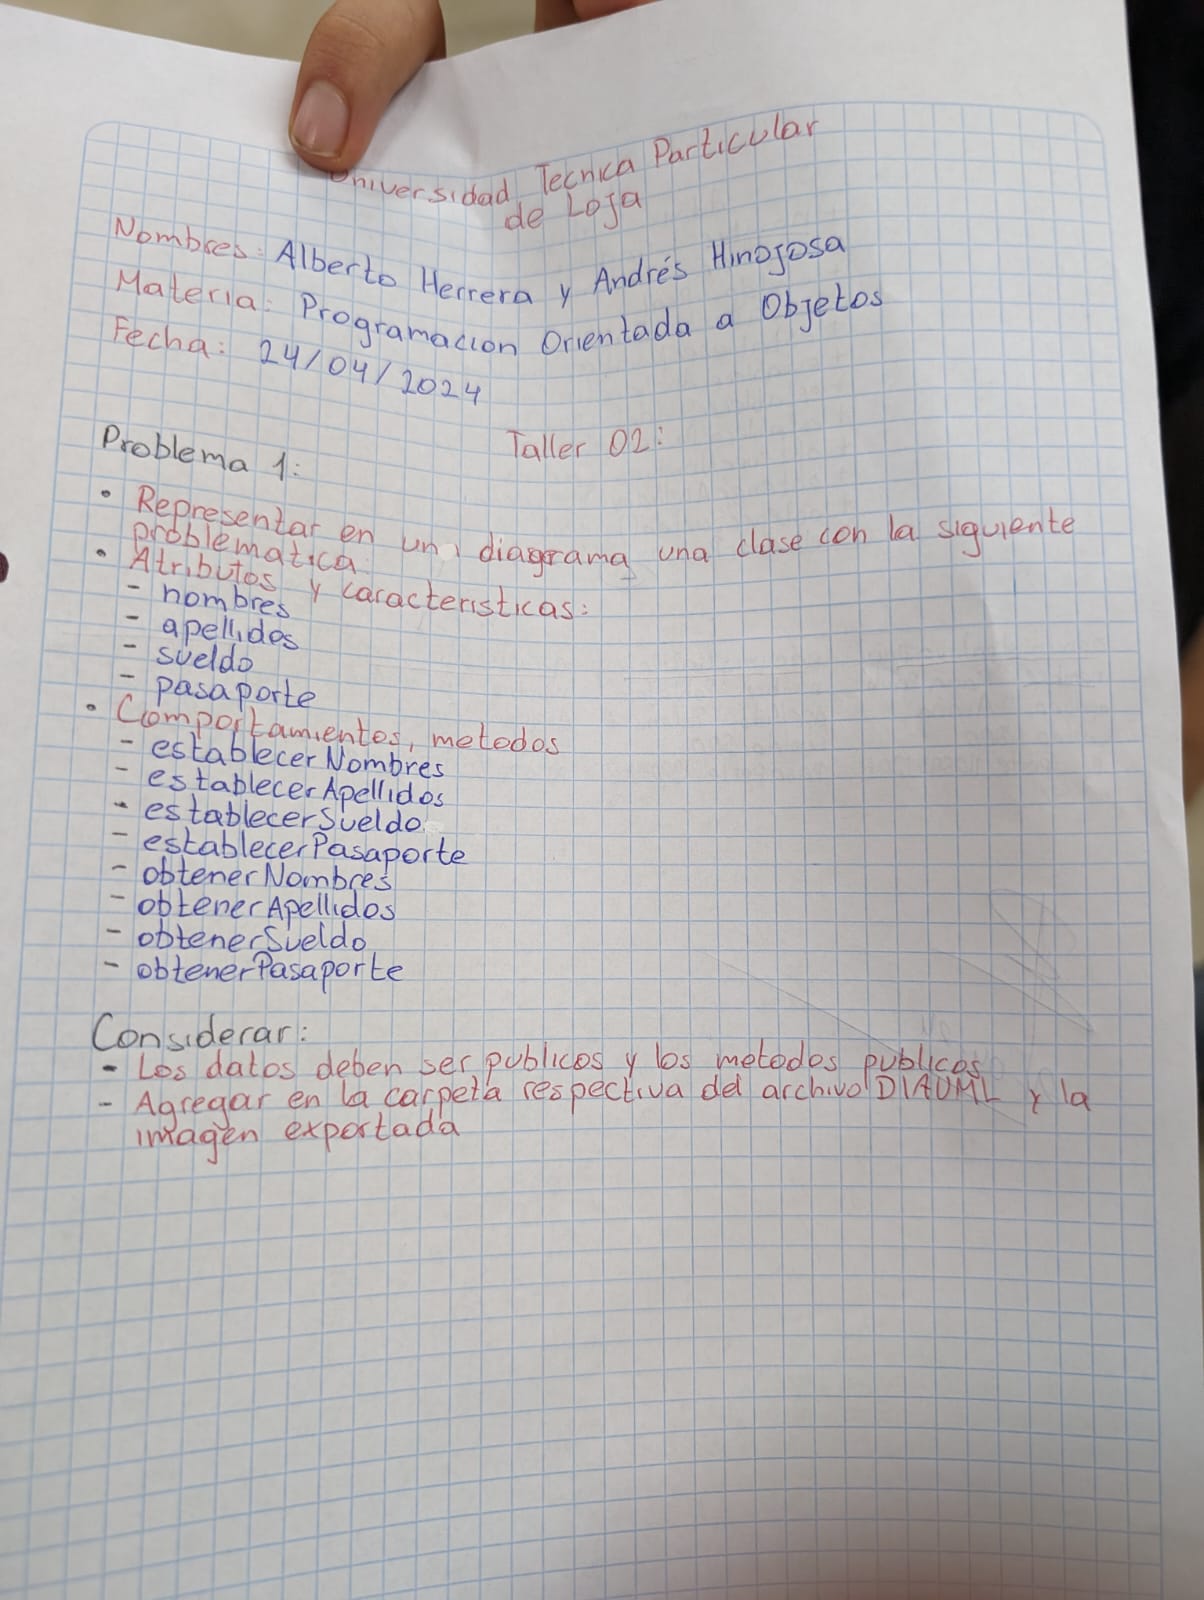 Universidad Tecnica Particular
de Loja
Nombres: Alberto Herrera y Andrés Hinojosa
Materia: Programacion Orientada a Objetos
Fecha: 24/04/2024
Taller 02:
Problema 1:
• Representar en un diagrama una clase con la siguiente
problematica.
• Atributos y caracteristicas:
- nombres
- apellidos
- sueldo
- pasaporte
• Comportamientos, metodos
- establecerNombres
- establecerApellidos
- establecerSueldo
- establecerPasaporte
- obtenerNombres
- obtenerApellidos
- obtenerSueldo
- obtenerPasaporte
Considerar:
- Los datos deben ser publicos y los metodos publicos
- Agregar en la carpeta respectiva del archivo DIAUML y la
imagen exportada